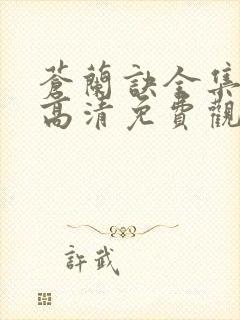 蒼蘭訣全集
高清免費觀
許武